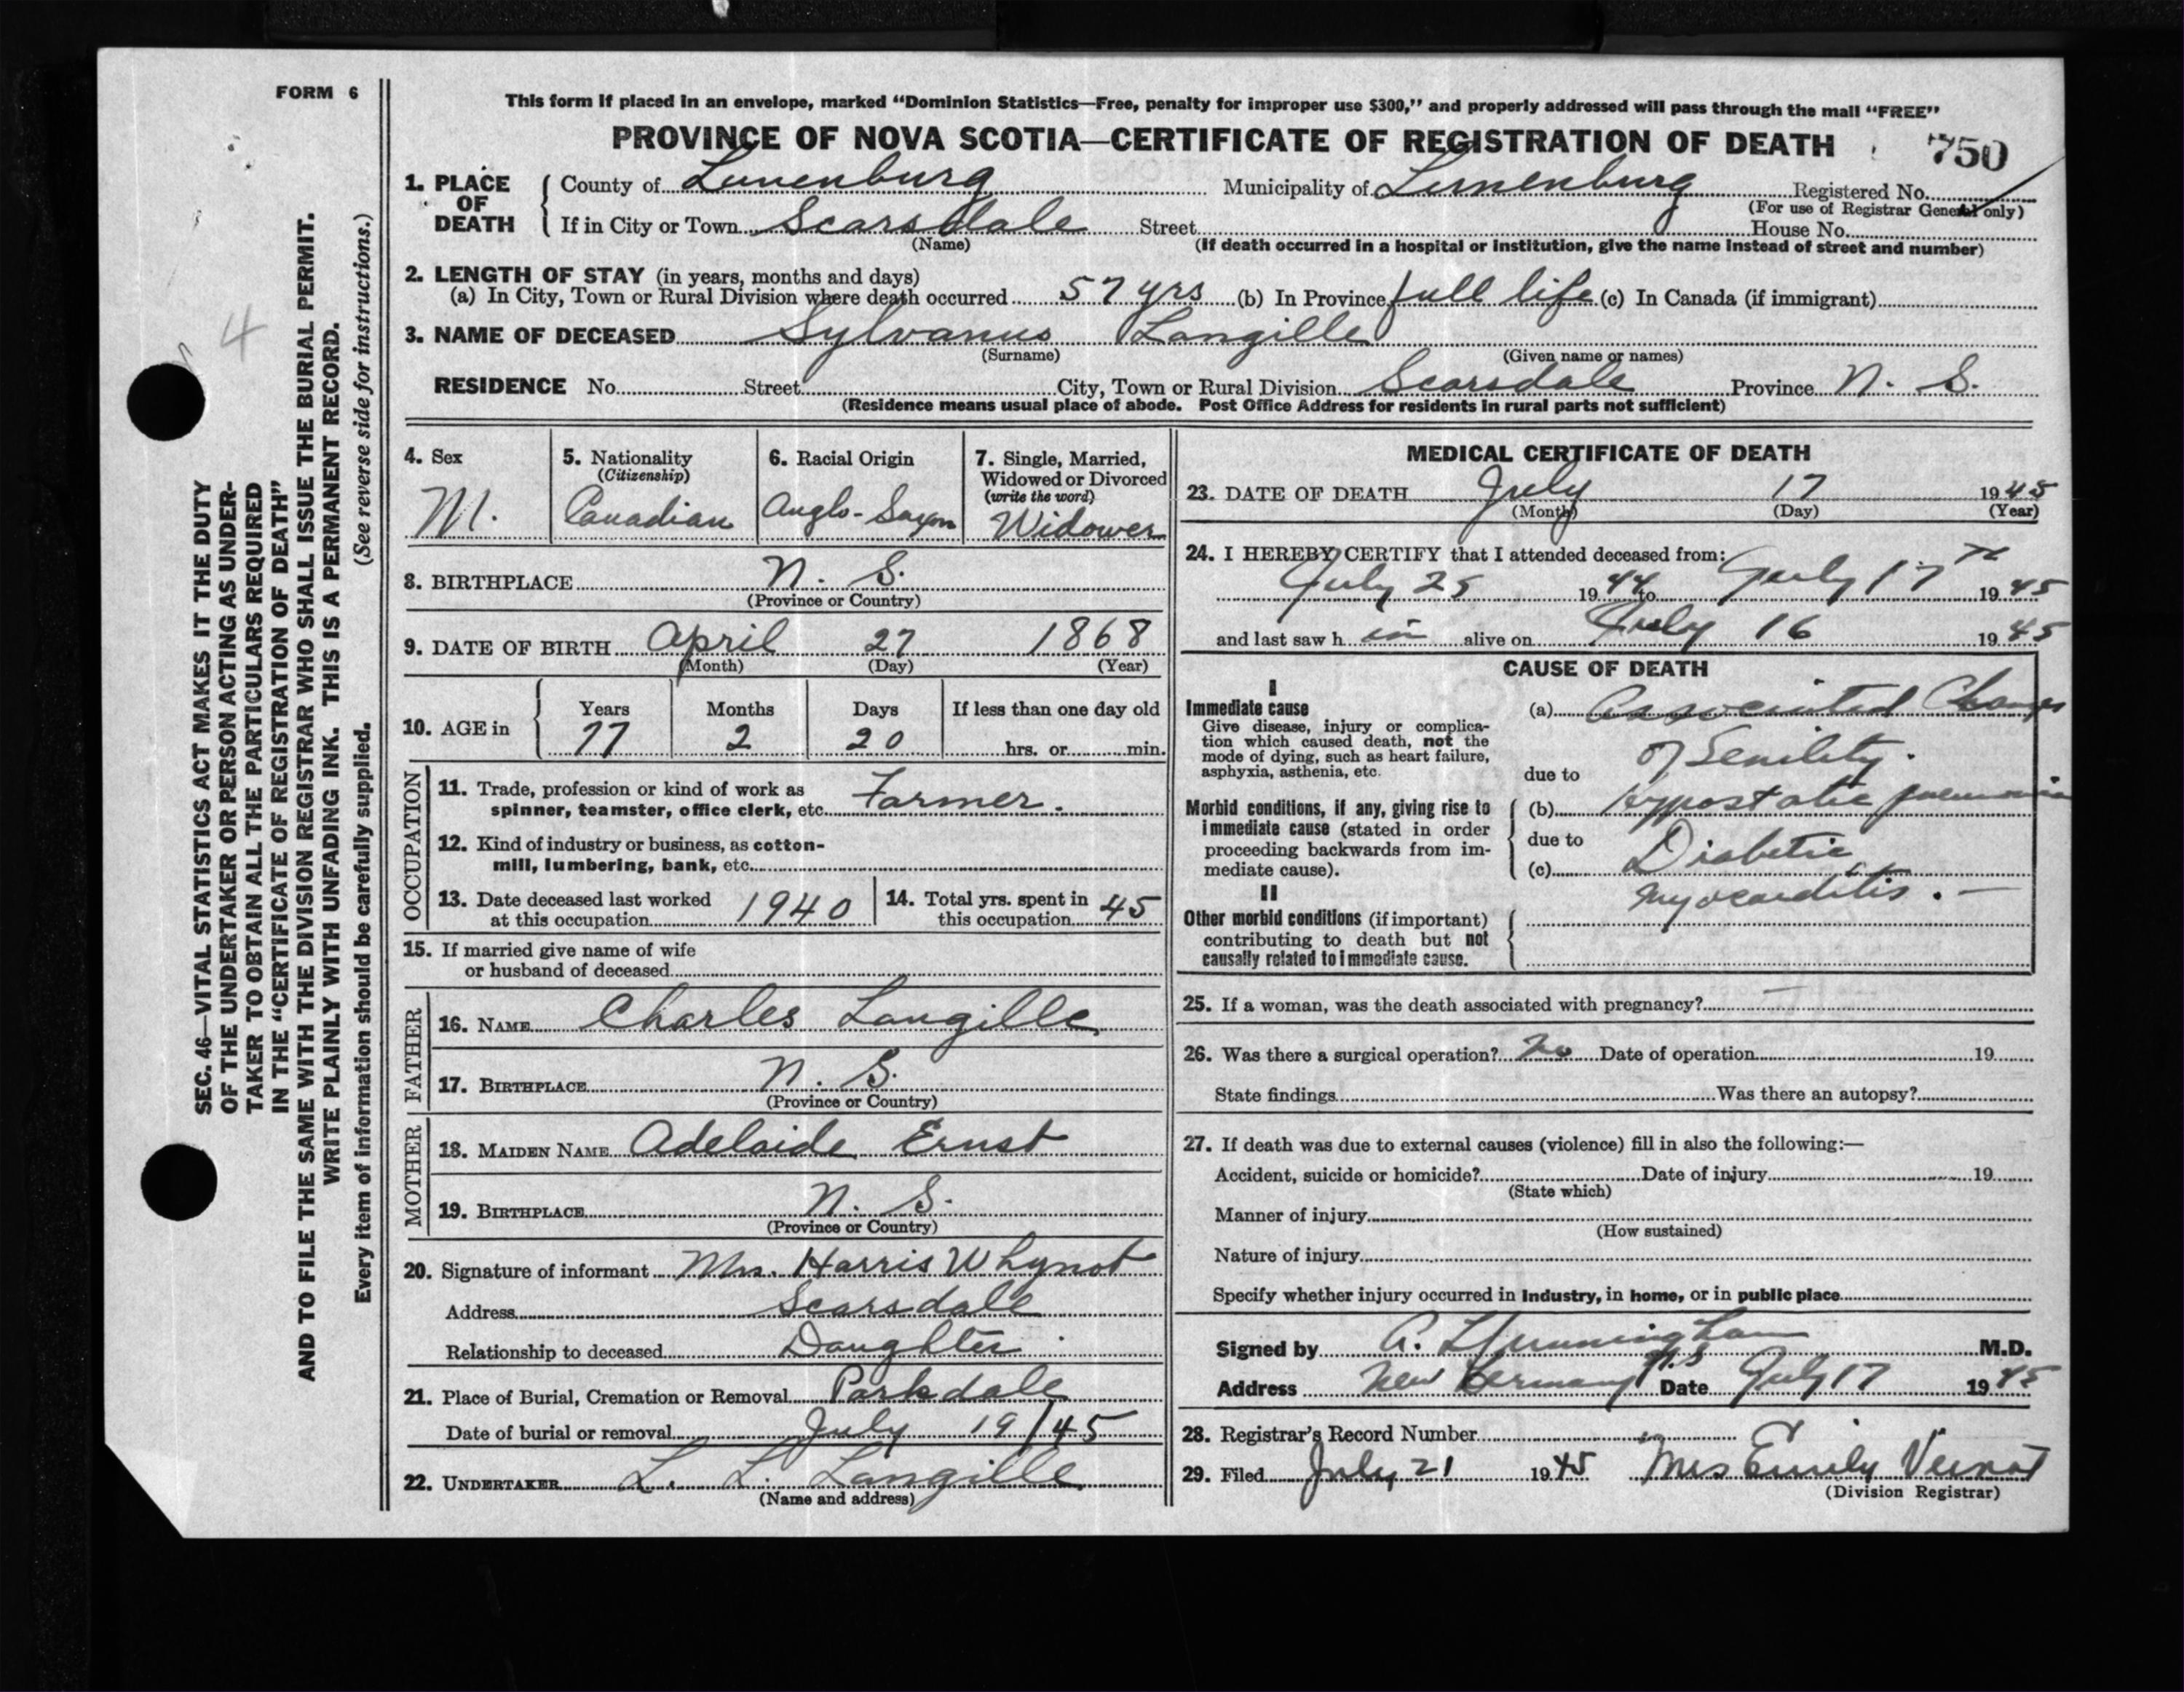 FORM 6
This form if placed in an envelope, marked “Dominion Statistics—Free, penalty for improper use $300,” and properly addressed will pass through the mail “FREE”
PROVINCE OF NOVA SCOTIA—CERTIFICATE OF REGISTRATION OF DEATH
750
1. PLACE OF DEATH
County of Lunenburg Municipality of Lunenburg Registered No.
(For use of Registrar General only)
If in City or Town Scarsdale Street House No.
(Name) (If death occurred in a hospital or institution, give the name instead of street and number)
2. LENGTH OF STAY (in years, months and days)
(a) In City, Town or Rural Division where death occurred 57 yrs (b) In Province full life (c) In Canada (if immigrant)
3. NAME OF DECEASED Sylvanus Langille
(Surname) (Given name or names)
RESIDENCE No. Street City, Town or Rural Division Scarsdale Province N. S.
(Residence means usual place of abode. Post Office Address for residents in rural parts not sufficient)
4. Sex
M.
5. Nationality
(Citizenship)
Canadian
6. Racial Origin
Anglo-Saxon
7. Single, Married,
Widowed or Divorced
(write the word)
Widower
8. BIRTHPLACE N. S.
(Province or Country)
9. DATE OF BIRTH April 27 1868
(Month) (Day) (Year)
10. AGE in
Years Months Days If less than one day old
77 2 20 hrs. or min.
OCCUPATION
11. Trade, profession or kind of work as
spinner, teamster, office clerk, etc. Farmer.
12. Kind of industry or business, as cotton-
mill, lumbering, bank, etc.
13. Date deceased last worked
at this occupation 1940
14. Total yrs. spent in
this occupation 45
15. If married give name of wife
or husband of deceased
FATHER
16. NAME Charles Langille
17. BIRTHPLACE N. S.
(Province or Country)
MOTHER
18. MAIDEN NAME Adelaide Ernst
19. BIRTHPLACE N. S.
(Province or Country)
20. Signature of informant Mrs. Harris Whynot
Address Scarsdale
Relationship to deceased Daughter
21. Place of Burial, Cremation or Removal Parkdale
Date of burial or removal July 19/45
22. UNDERTAKER L. L. Langille
(Name and address)
MEDICAL CERTIFICATE OF DEATH
23. DATE OF DEATH July 17 1945
(Month) (Day) (Year)
24. I HEREBY CERTIFY that I attended deceased from:
July 25 1944 to July 17th 1945
and last saw h im alive on July 16 1945
CAUSE OF DEATH
I
Immediate cause
Give disease, injury or complica-
tion which caused death, not the
mode of dying, such as heart failure,
asphyxia, asthenia, etc.
(a) Associated Changes
of Senility.
due to
Morbid conditions, if any, giving rise to
immediate cause (stated in order
proceeding backwards from im-
mediate cause).
(b) Hypostatic pneumonia
due to
(c) Diabetic
myocarditis.
II
Other morbid conditions (if important)
contributing to death but not
causally related to immediate cause.
25. If a woman, was the death associated with pregnancy?
26. Was there a surgical operation? No Date of operation 19
State findings Was there an autopsy?
27. If death was due to external causes (violence) fill in also the following:—
Accident, suicide or homicide? Date of injury 19
(State which)
Manner of injury
(How sustained)
Nature of injury
Specify whether injury occurred in industry, in home, or in public place
Signed by M.D.
Address New Germany N.S Date July 17 1945
28. Registrar's Record Number
29. Filed July 21 1945 Mrs Emily Veinot
(Division Registrar)
SEC. 46—VITAL STATISTICS ACT MAKES IT THE DUTY
OF THE UNDERTAKER OR PERSON ACTING AS UNDER-
TAKER TO OBTAIN ALL THE PARTICULARS REQUIRED
IN THE “CERTIFICATE OF REGISTRATION OF DEATH”
AND TO FILE THE SAME WITH THE DIVISION REGISTRAR WHO SHALL ISSUE THE BURIAL PERMIT.
WRITE PLAINLY WITH UNFADING INK. THIS IS A PERMANENT RECORD.
Every item of information should be carefully supplied. (See reverse side for instructions.)
4